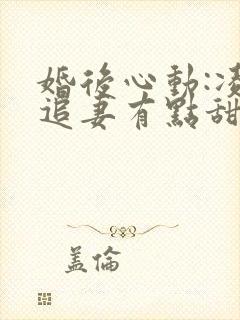 婚後心動:凌
追妻有點甜
盖倫